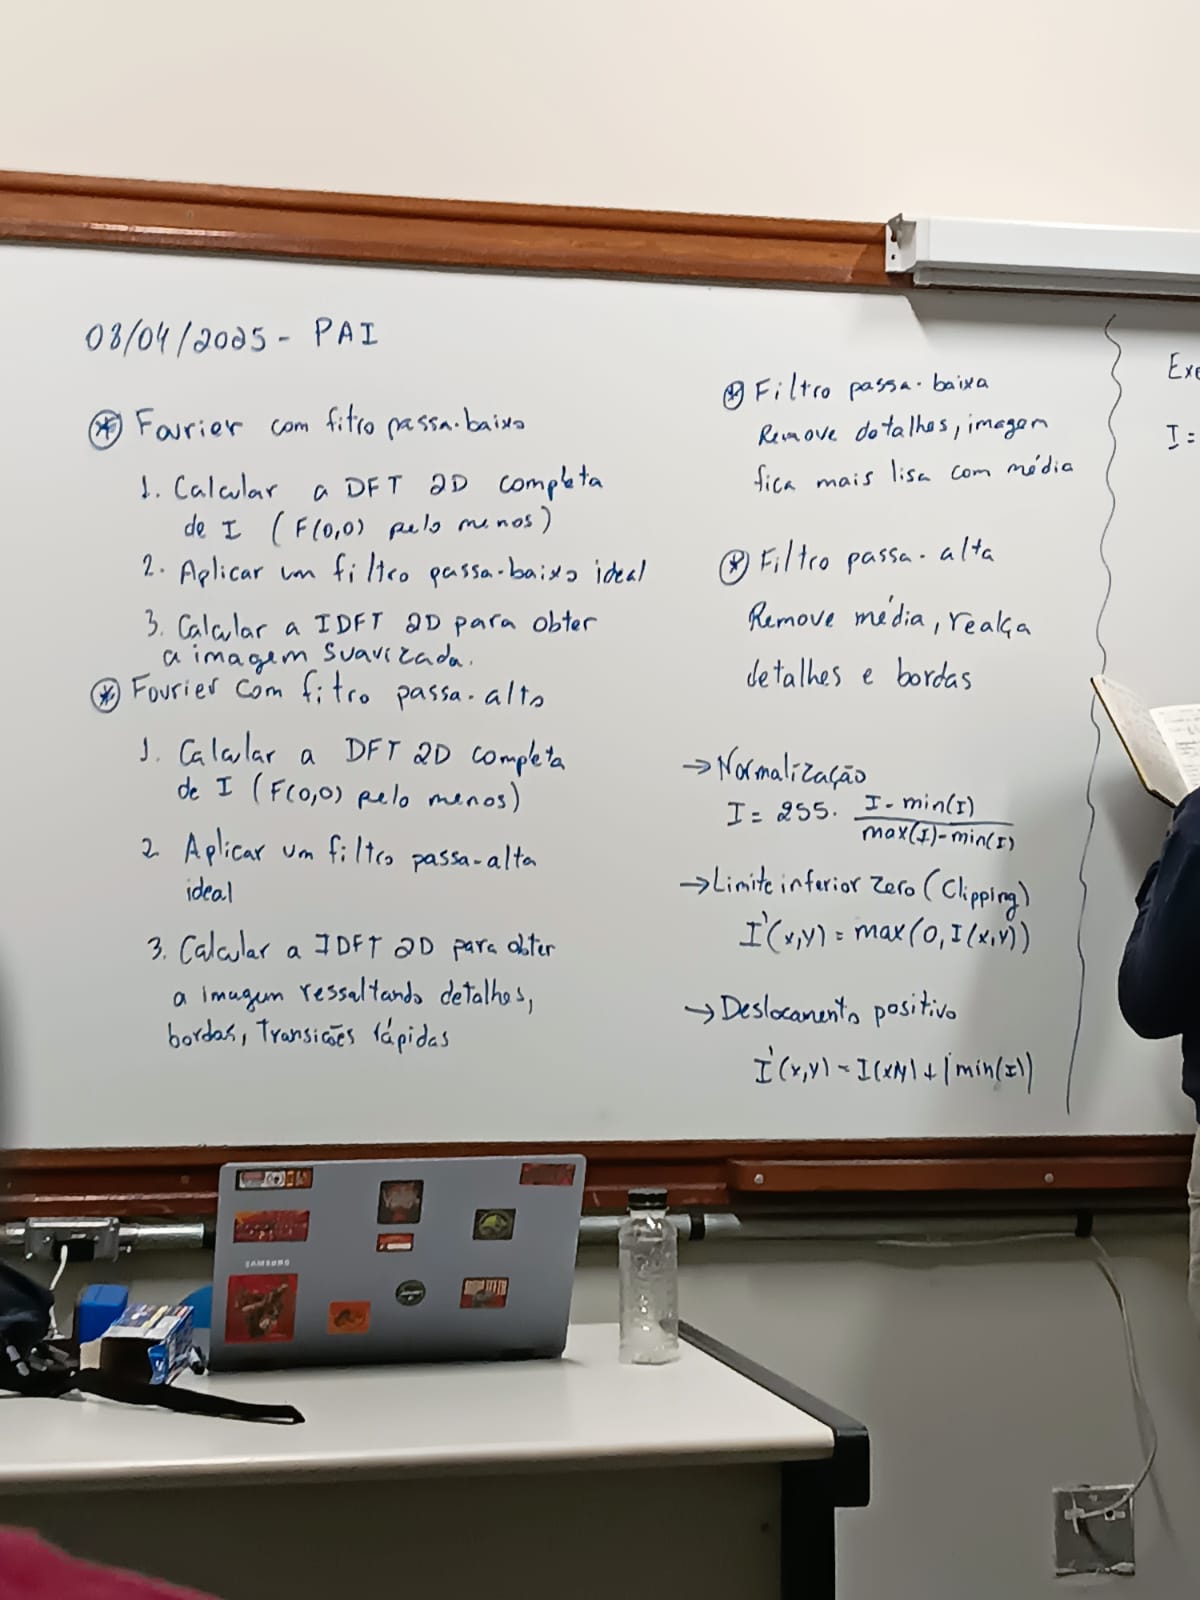 08/04/2025 - PAI
* Fourier com fitro passa-baixo
1. Calcular a DFT 2D completa
de I (F(0,0) pelo menos)
2. Aplicar um filtro passa-baixo ideal
3. Calcular a IDFT 2D para obter
a imagem suavizada.
* Fourier com fitro passa-alto
1. Calcular a DFT 2D completa
de I (F(0,0) pelo menos)
2 Aplicar um filtro passa-alta
ideal
3. Calcular a IDFT 2D para obter
a imagem ressaltando detalhes,
bordas, transicões rápidas
* Filtro passa-baixa
Remove detalhes, imagem
fica mais lisa com média
* Filtro passa-alta
Remove média, realça
detalhes e bordas
→ Normalização
I = 255. I - min(I) / max(I)-min(I)
→ Limite inferior zero (Clipping)
I'(x,y) = max(0, I(x,y))
→ Deslocamento positivo
I'(x,y) = I(x,y) + |min(I)|
Exe
I =
SAMSUNG